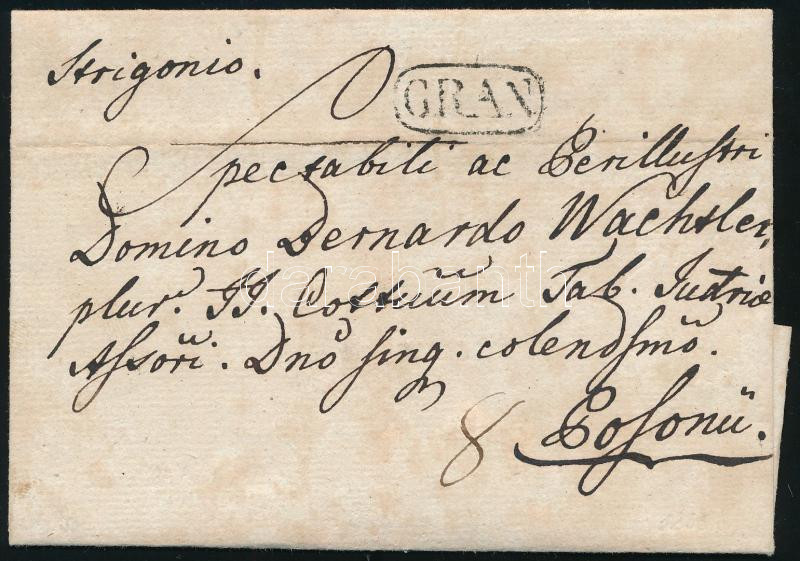 Strigonio.
GRAN
Spectabili ac Perillustri
Domino Bernardo Wachtler,
plur. II. Cottuum Tab. Judriæ
Assöri. Dnõ sing. colendsmõ.
8 Posonii.
darabanth